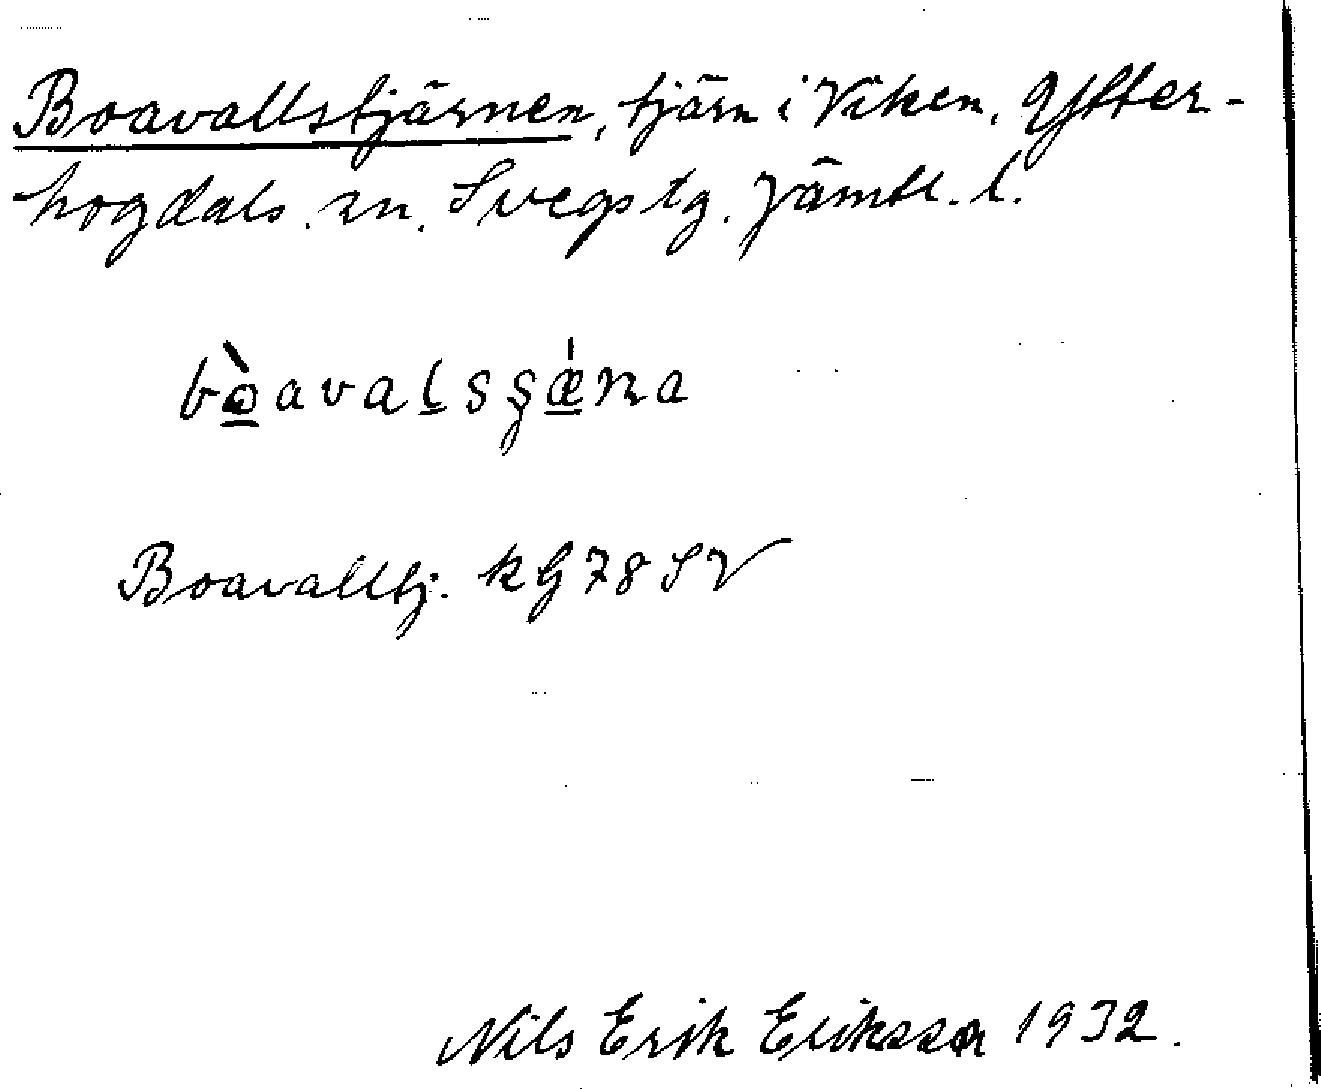 Boavallstjärnen, tjärn i Viken. Ytter-
hogdals sn. Svegs tg. Jämtl. l.
bòavalsʂǽna
Boavalltj. kG 78 SV
Nils Erik Eriksson 1932.